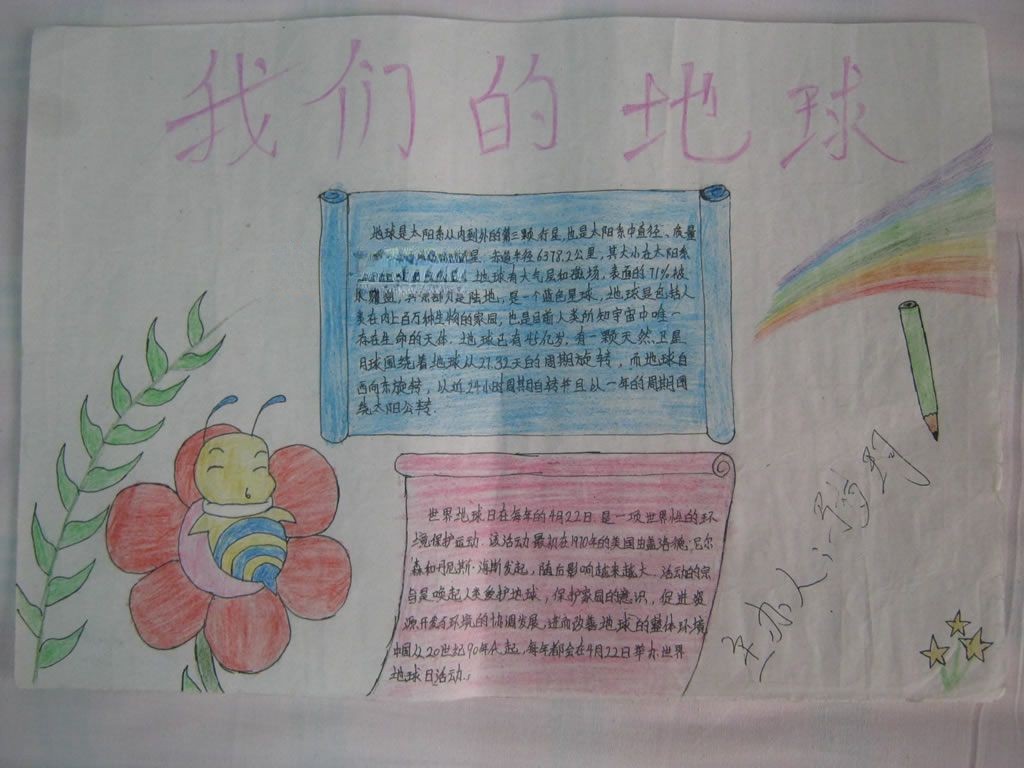 我们的地球
地球是太阳系从内到外的第三颗行星,也是太阳系中直径、质量
星.赤道半径6378.2公里,其大小在太阳系
地球有大气层和磁场,表面的71%被
水覆盖,其余部分是陆地,是一个蓝色星球。地球是包括人
类在内上百万种生物的家园,也是目前人类所知宇宙中唯一
存在生命的天体。地球已有45亿岁,有一颗天然卫星
月球围绕着地球以27.32天的周期旋转,而地球自
西向东旋转,以近24小时周期自转并且以一年的周期围
绕太阳公转.
世界地球日在每年的4月22日.是一项世界性的环
境保护运动.该活动最初在1970年的美国由盖洛德·尼尔
森和丹尼斯·海斯发起,随后影响越来越大.活动的宗
旨是唤起人类爱护地球,保护家园的意识,促进资
源开发与环境的协调发展,进而改善地球的整体环境
中国从20世纪90年代起,每年都会在4月22日举办世界
地球日活动.
主办人: